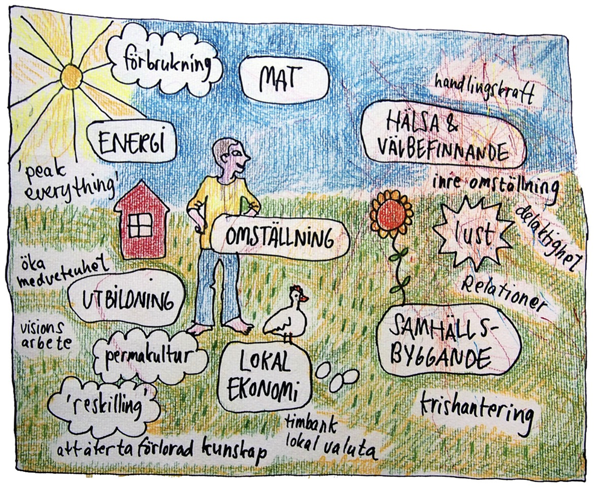 förbrukning
MAT
handlingskraft
ENERGI
HÄLSA &
VÄLBEFINNANDE
'peak
everything'
inre omställning
delaktighet
OMSTÄLLNING
lust
öka
medvetenhet
Relationer
UTBILDNING
SAMHÄLLS-
BYGGANDE
visions
arbete
permakultur
LOKAL
EKONOMI
'reskilling'
krishantering
timbank
lokal valuta
att återta förlorad kunskap